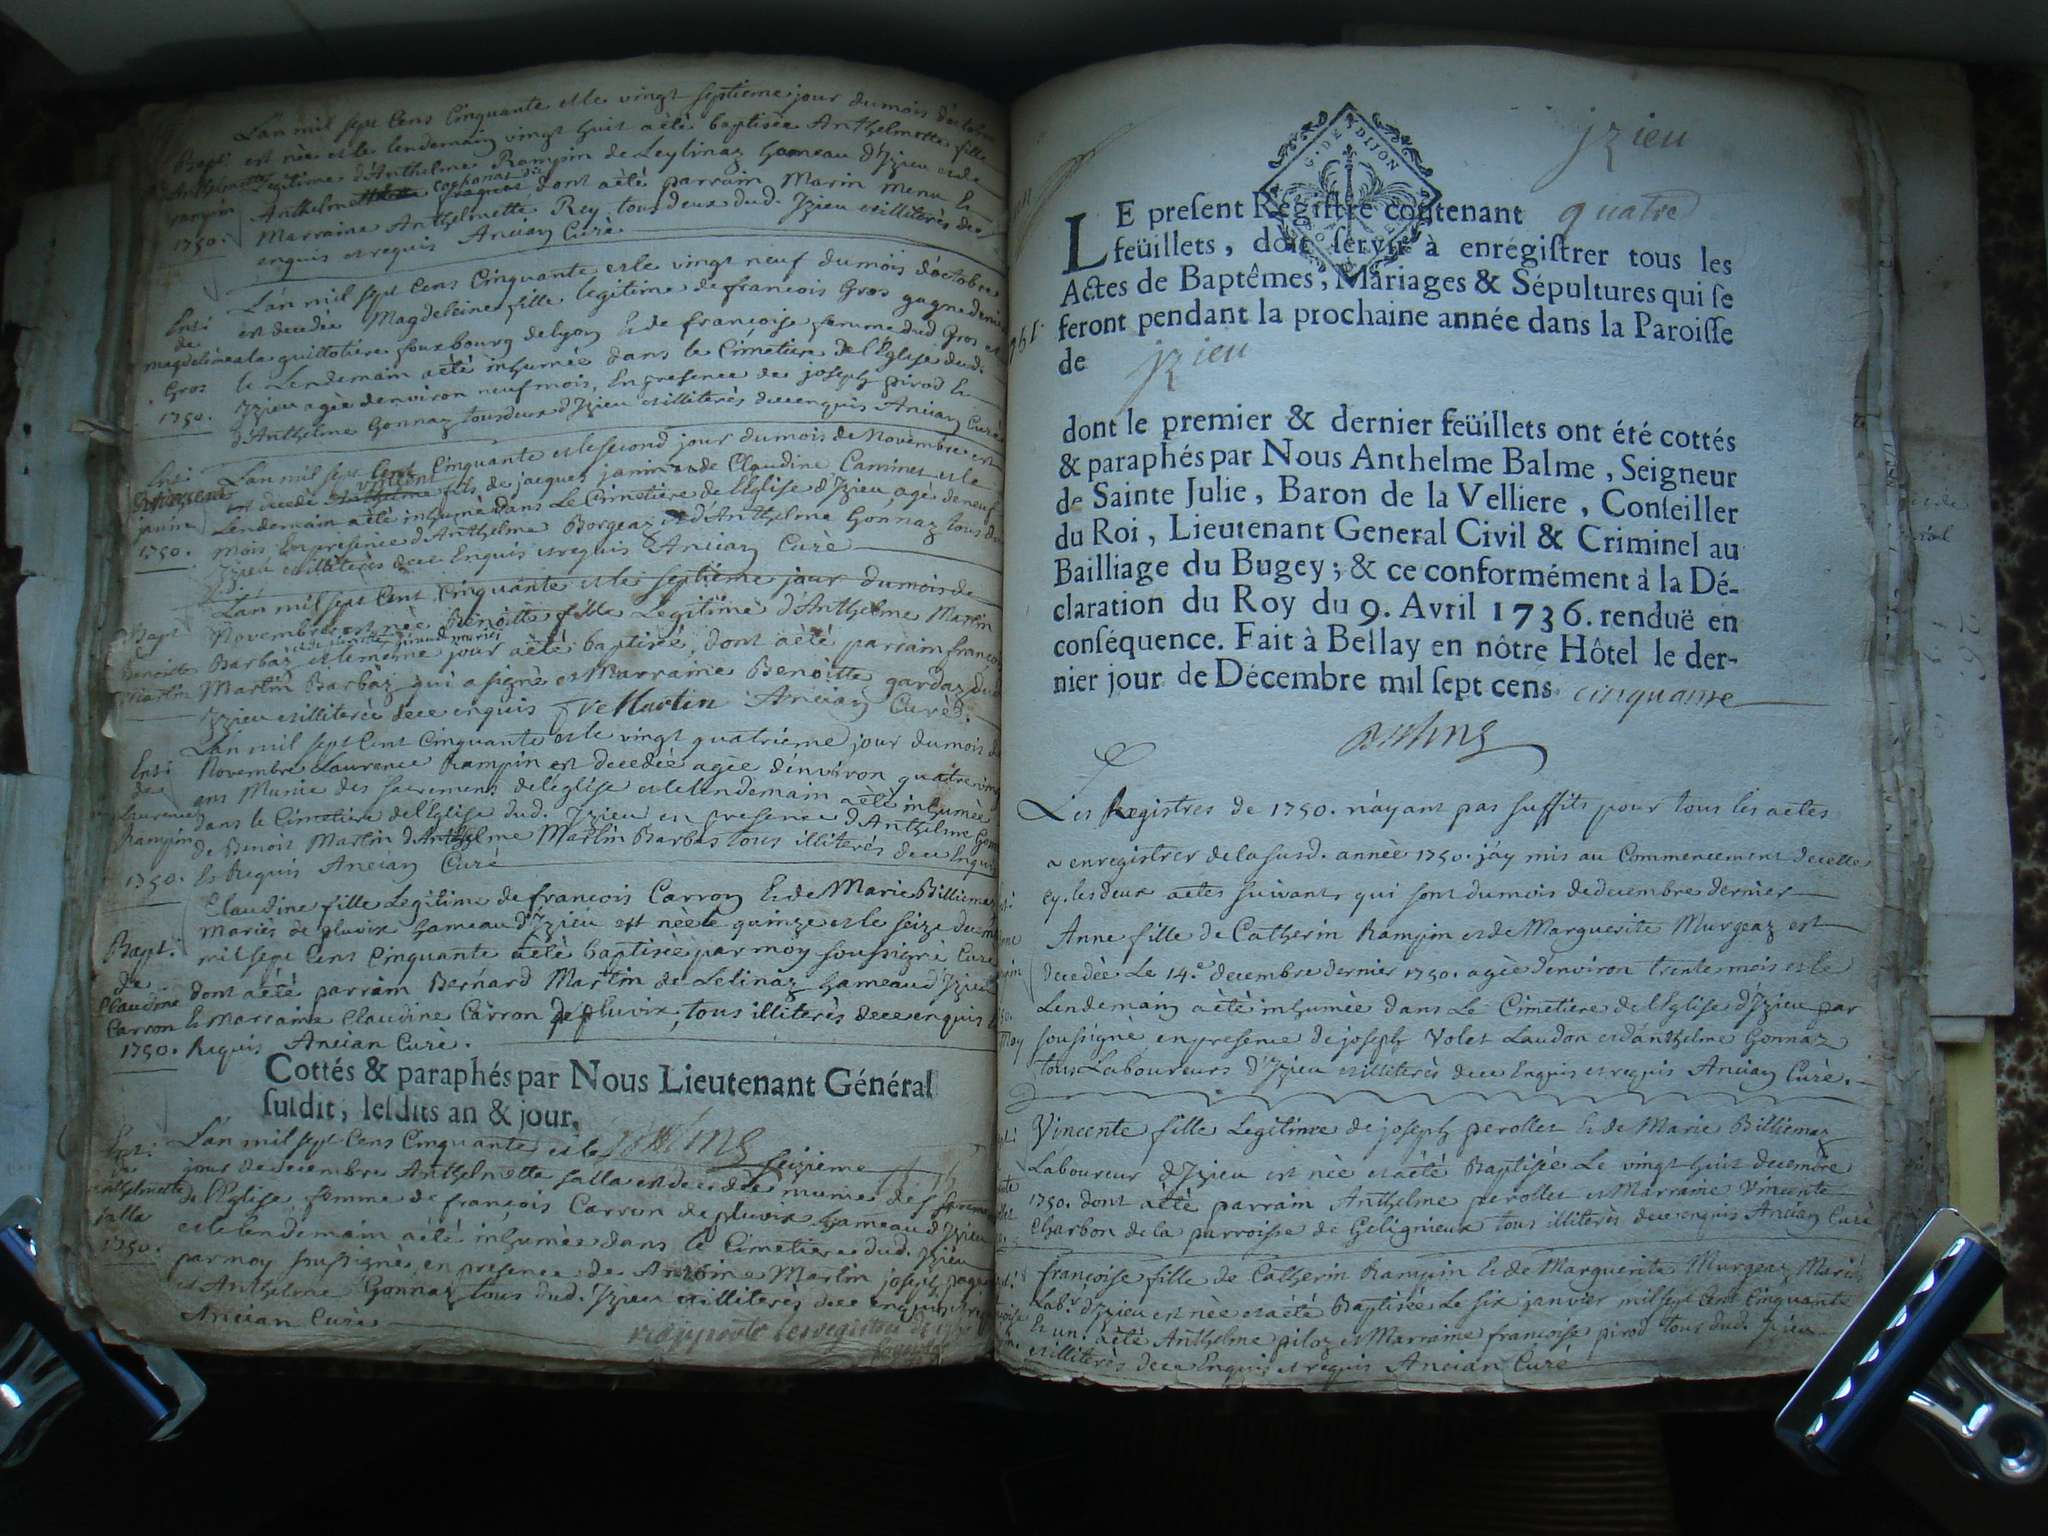 L'an mil sept Cens Cinquante et le vingt septieme jour du mois d'octobre
est nèe et le lendemain vingt huit a ètè baptisèe Anthelmette fille
Legitime d'Anthelme Rampin de Leylinaz hameau d'Izieu et de
Anthelmette dont a ètè parrain Marin Menu et
Marraine Anthelmette Rey tous deux dud. Izieu et illiterès de ce
enquis et requis Ancian Curè
Bapt:
Anthelmette
rampin
1750.
L'an mil sept Cens Cinquante et le vingt neuf du mois d'octobre
est decedèe Magdeleine fille legitime de francois Gros gagnedenier
a la guillotiere fouxbourg de lyon et de françoise femme dud. Gros et
le Lendemain a ètè inhumèe dans le Cimetiere de l'Eglise dud.
Izieu agèe d'environ neuf mois, En presence de joseph pirod et
d'Anthelme Gonnaz tous deux d'Izieu et illiterès de ce enquis Ancian Curè
Ent:
de
magdeleine
Gros
1750.
L'an mil sept Cent Cinquante et le second jour du mois de Novembre est
est decede vincent fils de jacques janin et de Claudine Caminet et le
Lendemain a ètè inhumè dans Le Cimetiere de l'Eglise d'Izieu, agè de neuf
mois En presence d'Anthelme Borgeaz et d'Anthelme Gonnaz tous du
Izieu et illiterès de ce Enquis et requis Ancian Curè
Ent:
vincent
janin
1750.
L'an mil sept Cent Cinquante et le septieme jour du mois de
Novembre est nèe Benoitte fille Legitime d'Anthelme Martin
Barbaz et le mème jour a ètè baptisèe, dont a ètè parrain françois
Martin Barbaz qui a signè et Marraine Benoitte gardaz dud.
Izieu et illiterèe de ce enquis fre Martin Ancian Curè.
Bapt
Benoitte
Martin
L'an mil sept Cent Cinquante et le vingt quatrieme jour du mois de
Novembre Laurence Rampin est decedèe agèe d'environ quatre vingt
ans Munie des sacremens de l'èglise et le lendemain a ètè inhumèe
dans le Cimetiere de l'Eglise dud. Izieu en presence d'Anthelme Gonnaz
de Benoit Martin d'Anthelme Martin Barbas tous illiterès de ce Enquis
Et Requis Ancian Curè
Ent:
de
Laurence
Rampin
1750.
Claudine fille Legitime de francois Carron Et de Marie Billiemaz
Mariès de pluvix hameau d'Izieu est nèe le quinze et le seize decembre
mil sept Cens Cinquante a ètè baptisèe par moy soussignè Curè
dont a ètè parrain Bernard Martin de Lelinaz hameau d'Izieu
Et Marraine Claudine Carron de pluvix, tous illiterès de ce enquis et
Requis Ancian Curè.
Bapt:
de
Claudine
Carron
1750.
Cottés & paraphés par Nous Lieutenant Général
susdit, lesdits an & jour,
Balme
L'an mil sept Cens Cinquante et le seizieme
jour de decembre Anthelmette falla est decedèe munie des sacremens
de l'Eglise femme de françois Carron de pluvix hameau d'Izieu
et le lendemain a ètè inhumèe dans le Cimetiere dud. Izieu
par moy soussignè en presence de Antoine Martin joseph
et Anthelme Gonnaz tous dud. Izieu et illiterès de ce enquis et requis
Ancian Curè
Ent:
de
anthelmette
falla
1750.
rapporte les registres de
Izieu
G. DE DIJON
LE present Registre contenant quatre
feüillets, doit servir à enrégistrer tous les
Actes de Baptêmes, Mariages & Sépultures qui se
feront pendant la prochaine année dans la Paroisse
de Izieu
dont le premier & dernier feüillets ont été cottés
& paraphés par Nous Anthelme Balme, Seigneur
de Sainte Julie, Baron de la Velliere, Conseiller
du Roi, Lieutenant General Civil & Criminel au
Bailliage du Bugey; & ce conformément à la Dé-
claration du Roy du 9. Avril 1736. renduë en
conséquence. Fait à Bellay en nôtre Hôtel le der-
nier jour de Décembre mil sept cens cinquante
Balme
Les Registres de 1750. n'ayant pas suffits pour tous les actes
a enregistrer de la susd. annèe 1750. j'ay mis au Commencement de celle
cy. les deux actes suivants qui sont du mois de decembre dernier
Anne fille de Catherin Rampin et de Marguerite Murgeaz est
decedèe Le 14.e decembre dernier 1750. agèe d'environ trente mois et le
Lendemain a ètè inhumèe dans Le Cimetiere de l'Eglise d'Izieu par
soussigne en presence de joseph Volet Laudon et d'anthelme Gonnaz
tous Laboureurs d'Izieu et illiterès de ce Enquis et requis Ancian Curè.
Vincente fille Legitime de joseph perollet Et de Marie Billiemaz
Laboureur d'Izieu est nèe et a ètè Baptisèe Le vingt huit decembre
1750. dont a ètè parrain Anthelme perollet et Marraine Vincente
Charbon de la parroisse de Gelignieux tous illiterès de ce enquis Ancian Curè
françoise fille de Catherin Rampin Et de Marguerite Murgeaz Mariès
Labr. d'Izieu est nèe et a ètè Baptisèe Le six janvier mil sept Cent Cinquante
Et un. a ètè Anthelme piloz et Marraine francoise pirod tous dud. Izieu
et illiterès de ce Enquis et requis Ancian Curè